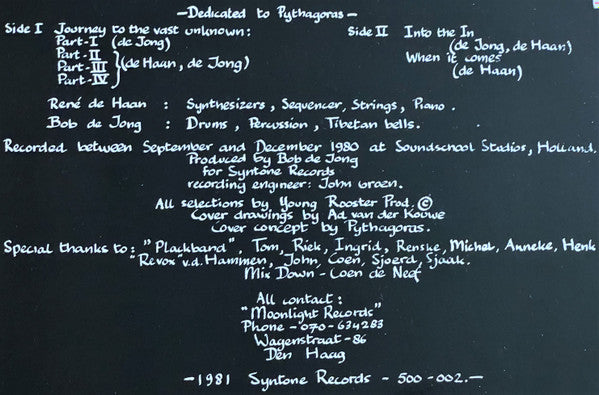 —Dedicated to Pythagoras—
Side I Journey to the vast unknown:
Part-I (de Jong)
Part-II
Part-III (de Haan, de Jong)
Part-IV
Side II Into the In
(de Jong, de Haan)
When it comes
(de Haan)
René de Haan : Synthesizers, Sequencer, Strings, Piano.
Bob de Jong : Drums, Percussion, Tibetan bells.
Recorded between September and December 1980 at Soundschool Studios, Holland.
Produced by Bob de Jong
for Syntone Records
recording engineer: John Groen.
All selections by Young Rooster Prod. ©
Cover drawings by Ad van der Kouwe
Cover concept by Pythagoras.
Special thanks to: "Plackband", Tom, Riek, Ingrid, Renske, Michel, Anneke, Henk
"Revox" v.d. Hammen, John, Coen, Sjoerd, Sjaak.
Mix Down - Coen de Neef
All contact:
"Moonlight Records"
Phone - 070-634283
Wagenstraat-86
Den Haag
—1981 Syntone Records - 500-002.—